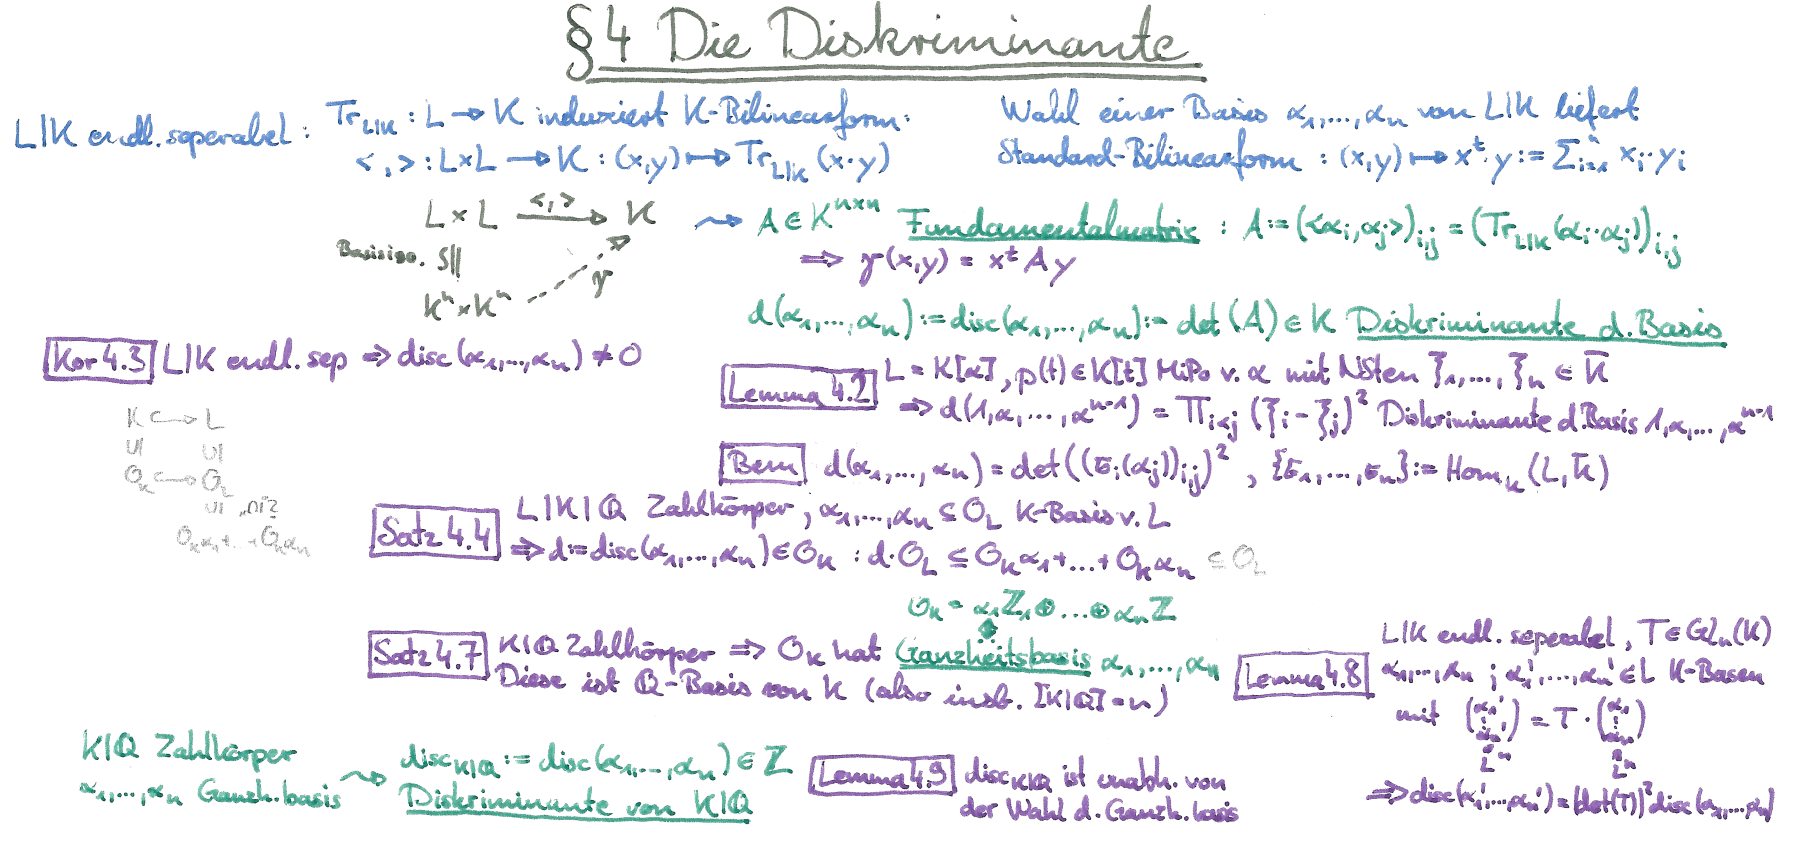 §4 Die Diskriminante
L|K endl. seperabel:
Tr_{L|K} : L → K induziert K-Bilinearform:
< , > : L×L → K : (x,y) ↦ Tr_{L|K} (x·y)
Wahl einer Basis α₁,...,αₙ von L|K liefert
Standard-Bilinearform : (x,y) ↦ xᵗ·y := Σᵢ₌₁ⁿ xᵢ·yᵢ
L × L —<,>→ K
Basisiso. S||
Kⁿ×Kⁿ γ
⇝ A ∈ Kⁿˣⁿ Fundamentalmatrix : A := (<αᵢ,αⱼ>)_{i,j} = (Tr_{L|K}(αᵢ·αⱼ))_{i,j}
⇒ γ(x,y) = xᵗ A y
d(α₁,...,αₙ) := disc(α₁,...,αₙ) := det(A) ∈ K Diskriminante d. Basis
Kor 4.3 L|K endl. sep ⇒ disc(α₁,...,αₙ) ≠ 0
Lemma 4.2 L = K[α], p(t) ∈ K[t] MiPo v. α mit NSten ξ₁,...,ξₙ ∈ K̄
⇒ d(1,α,...,αⁿ⁻¹) = Π_{i<j} (ξᵢ - ξⱼ)² Diskriminante d. Basis 1,α,...,αⁿ⁻¹
Bem d(α₁,...,αₙ) = det((σᵢ(αⱼ))_{i,j})² , {σ₁,...,σₙ} := Hom_K(L,K̄)
K ↪ L
U| U|
O_K ↪ O_L
U| "ni?
O_Kα₁+...+O_Kαₙ
Satz 4.4 L|K|Q Zahlkörper, α₁,...,αₙ ⊆ O_L K-Basis v. L
⇒ d := disc(α₁,...,αₙ) ∈ O_K : d·O_L ⊆ O_Kα₁+...+O_Kαₙ ⊆ O_L
O_K = α₁ℤ₁⊕...⊕αₙℤ
Satz 4.7 K|Q Zahlkörper ⇒ O_K hat Ganzheitsbasis α₁,...,αₙ
Diese ist Q-Basis von K (also insb. [K|Q] = n)
Lemma 4.8 L|K endl. seperabel, T ∈ Glₙ(K)
α₁,...,αₙ ; α₁',...,αₙ' ∈ L K-Basen
mit (α₁' ⋮ αₙ') = T · (α₁ ⋮ αₙ)
∈ Lⁿ ∈ Lⁿ
⇒ disc(α₁',...,αₙ') = |det(T)|² disc(α₁,...,αₙ)
K|Q Zahlkörper
α₁,...,αₙ Ganzh.basis
⇝ disc_{K|Q} := disc(α₁,...,αₙ) ∈ ℤ
Diskriminante von K|Q
Lemma 4.9 disc_{K|Q} ist unabh. von
der Wahl d. Ganzh.basis